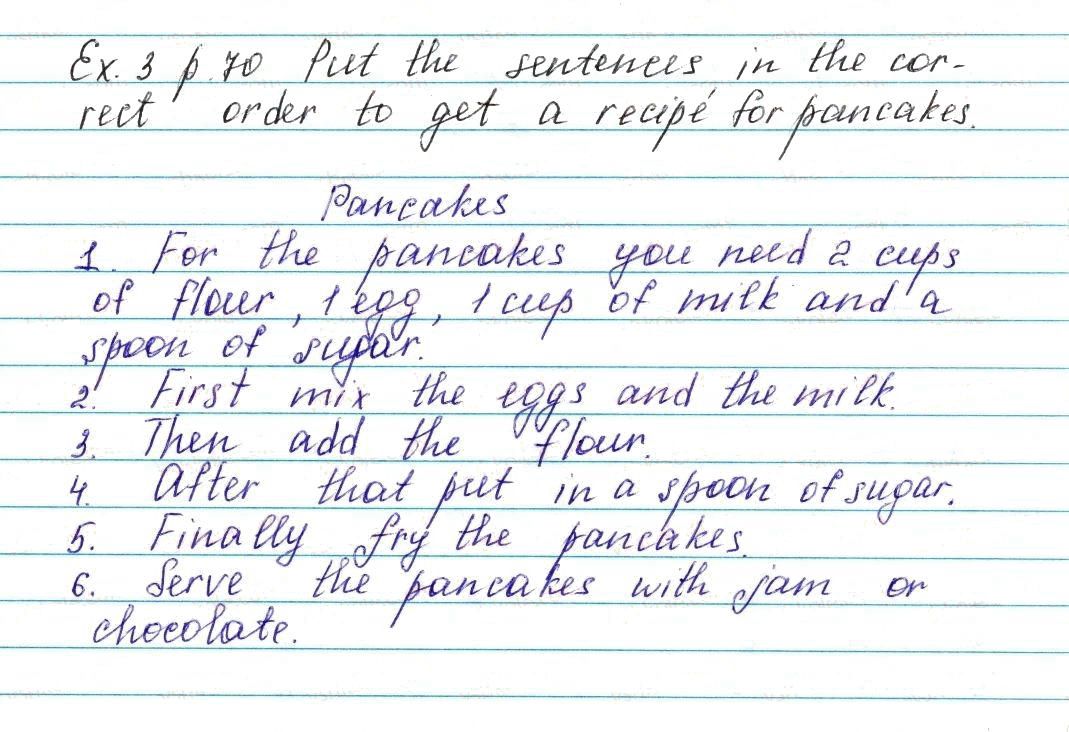 Ex. 3 p. 70 Put the sentences in the cor-
rect order to get a recipé for pancakes.
Pancakes
1. For the pancakes you need 2 cups
of flour, 1 egg, 1 cup of milk and a
spoon of sugar.
2. First mix the eggs and the milk.
3. Then add the flour.
4. After that put in a spoon of sugar.
5. Finally fry the pancakes.
6. Serve the pancakes with jam or
chocolate.